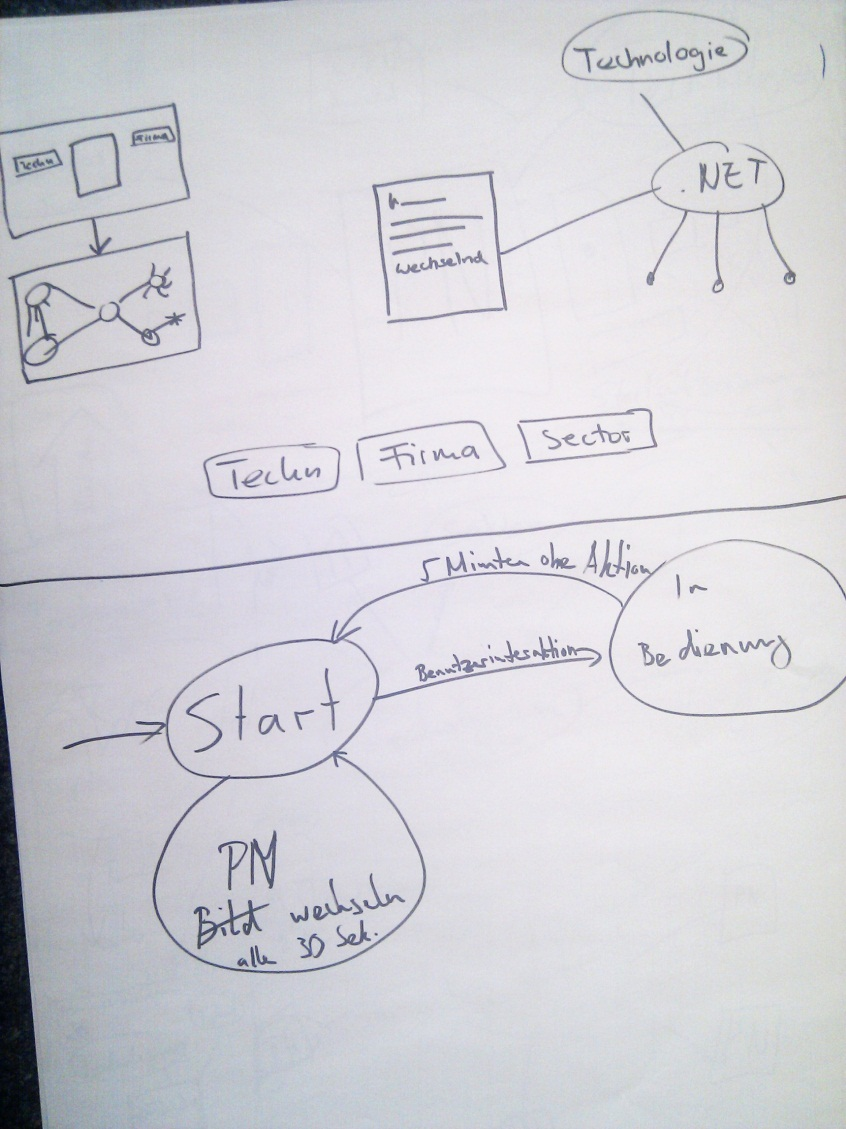 Technologie
Techn
Firma
.NET
wechselnd
Techn
Firma
Sector
5 Minuten ohne Aktion
In
Bedienung
Benutzerinteraktion
Start
PM
Bild wechseln
alle 30 Sek.